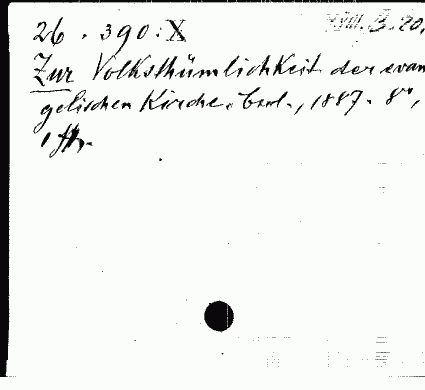 26 . 390 : X
XVIII. 3. 20.
Zur Volksthümlichkeit der evan
gelischen Kirche. Berl., 1887. 8°,
1